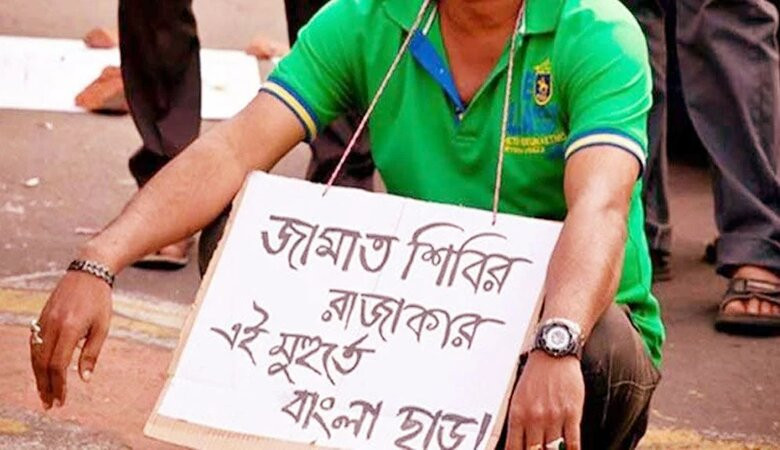 জামাত শিবির
রাজাকার
এই মুহুর্তে
বাংলা ছাড়!